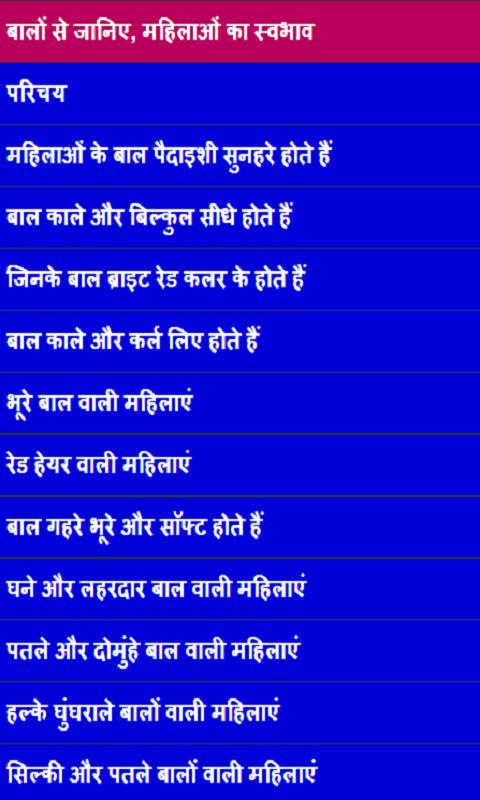 बालों से जानिए, महिलाओं का स्वभाव
परिचय
महिलाओं के बाल पैदाइशी सुनहरे होते हैं
बाल काले और बिल्कुल सीधे होते हैं
जिनके बाल ब्राइट रेड कलर के होते हैं
बाल काले और कर्ल लिए होते हैं
भूरे बाल वाली महिलाएं
रेड हेयर वाली महिलाएं
बाल गहरे भूरे और सॉफ्ट होते हैं
घने और लहरदार बाल वाली महिलाएं
पतले और दोमुंहे बाल वाली महिलाएं
हल्के घुंघराले बालों वाली महिलाएं
सिल्की और पतले बालों वाली महिलाएं